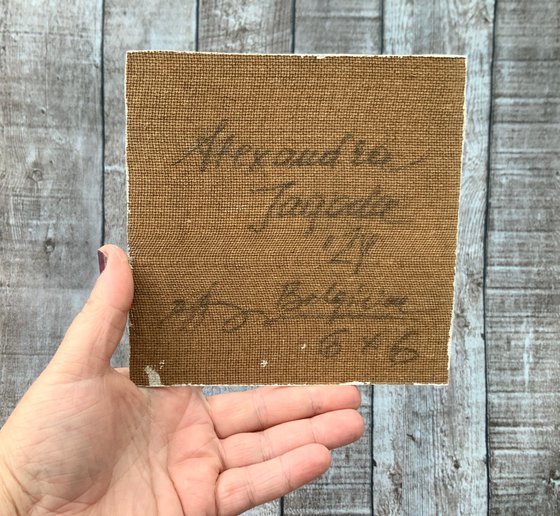 Alexandra
Jagoda
'24
Belgium
6 x 6